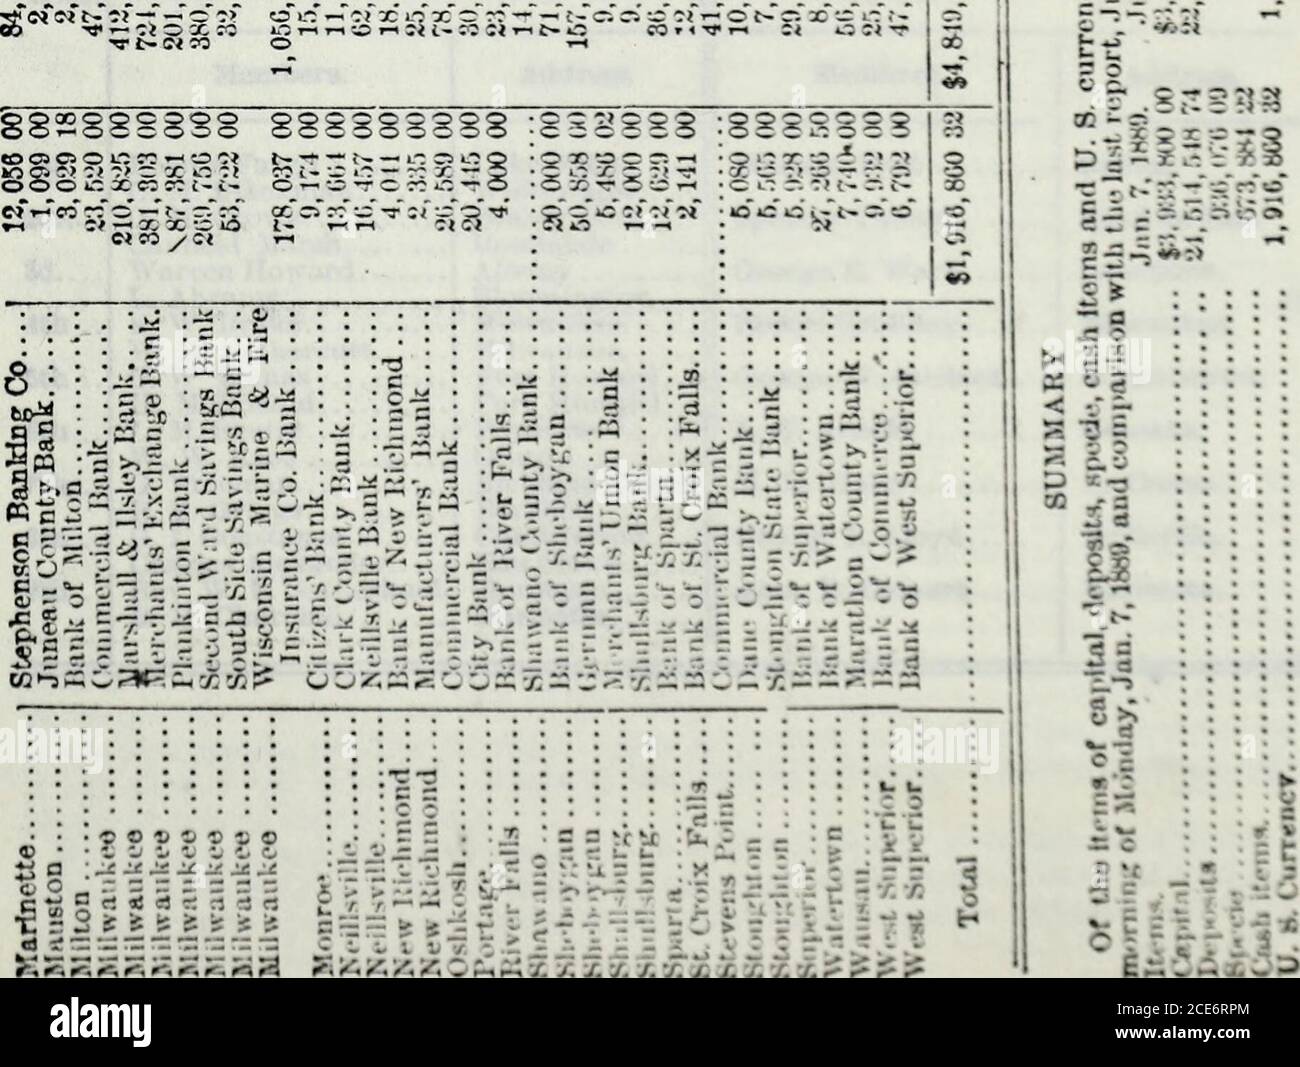 Marinette.......... Stephenson Banking Co... 12,056 00 84,
Mauston.......... Juneau County Bank.... 1,099 00 2,
Milton.......... Bank of Milton.......... 3,029 18 2,
Milwaukee.......... Commercial Bank.......... 23,520 00 47,
Milwaukee.......... Marshall & Ilsley Bank.... 210,825 00 412,
Milwaukee.......... Merchants' Exchange Bank. 381,303 00 724,
Milwaukee.......... Plankinton Bank.......... 87,381 00 201,
Milwaukee.......... Second Ward Savings Bank 269,756 00 380,
Milwaukee.......... South Side Savings Bank.. 53,722 00 32,
Milwaukee.......... Wisconsin Marine & Fire
Insurance Co. Bank.... 178,037 00 1,056,
Monroe.......... Citizens' Bank.......... 9,174 00 15,
Neillsville.......... Clark County Bank........ 13,664 00 11,
Neillsville.......... Neillsville Bank.......... 16,457 00 62,
New Richmond.... Bank of New Richmond... 4,041 00 18.
New Richmond.... Manufacturers' Bank.... 2,335 00 25,
Oshkosh.......... Commercial Bank.......... 26,589 00 78,
Portage.......... City Bank.......... 20,445 00 30,
River Falls.......... Bank of River Falls....... 4,000 00 23,
Shawano.......... Shawano County Bank.... .......... 14,
Sheboygan.......... Bank of Sheboygan....... 20,000 00 71,
Sheboygan.......... German Bank.......... 50,858 00 157,
Shullsburg.......... Merchants' Union Bank.. 5,486 02 9,
Shullsburg.......... Shullsburg Bank.......... 12,000 00 9.
Sparta.......... Bank of Sparta.......... 12,629 00 36,
St. Croix Falls..... Bank of St. Croix Falls.. 2,141 00 12,
Stevens Point...... Commercial Bank.......... .......... 41,
Stoughton.......... Dane County Bank....... 5,080 00 10,
Stoughton.......... Stoughton State Bank.... 5,565 00 7,
Superior.......... Bank of Superior.......... 5,928 00 29,
Watertown.......... Bank of Watertown....... 27,266 50 8,
Wausau.......... Marathon County Bank... 7,740 00 56,
West Superior..... Bank of Commerce....... 9,932 00 25,
West Superior..... Bank of West Superior... 6,792 00 47,
Total.......... $1,916,860 32 $4,849,
SUMMARY
Of the items of capital, deposits, specie, cash items and U. S. curren
morning of Monday, Jan. 7, 1889, and comparison with the last report, Ju
Items. Jan. 7, 1889. Ju
Capital.......... $3,933,800 00 $3,
Deposits.......... 24,514,548 74 22,
Specie.......... 936,076 09
Cash items.......... 673,884 22
U. S. Currency.......... 1,916,860 32 1,
alamy
Image ID: 2CE6RPM
www.alamy.com